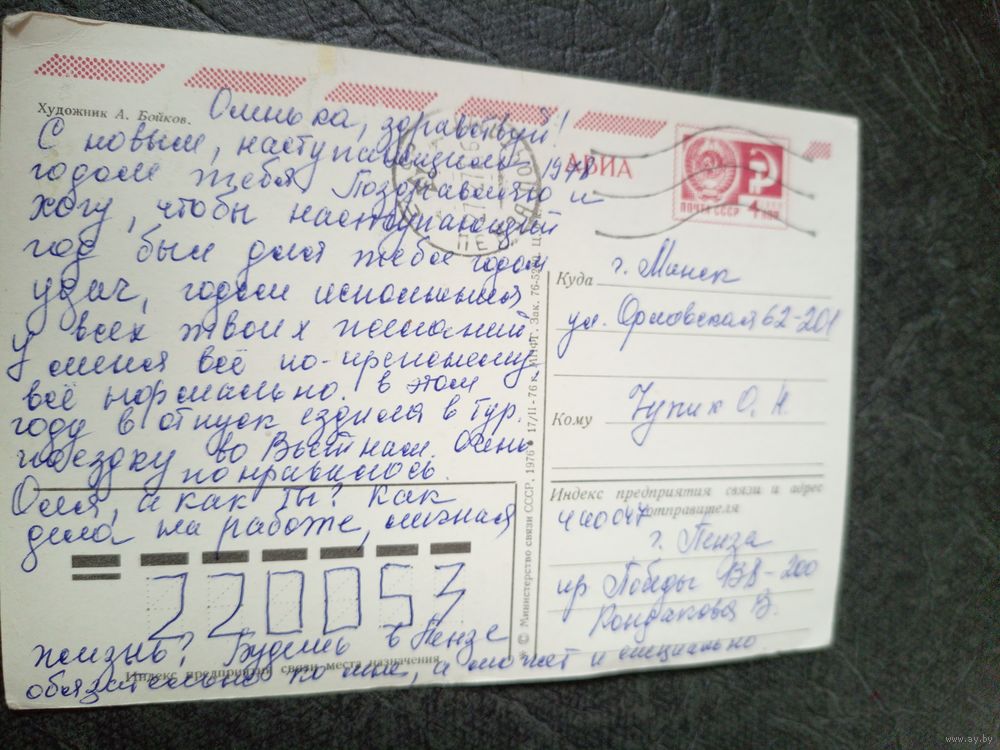 Художник А. Бойков.
Оленька, здравствуй!
С новым, наступающим 1978
годом тебя поздравляю и
хочу, чтобы наступающий
год был для тебя годом
удач, годом исполнения
всех твоих желаний.
У меня всё по-прежнему,
всё нормально. в этом
году в отпуск ездила в тур.
поездку во Вьетнам. Очень
понравилось.
Оля, а как ты? Как
дела на работе, личная
220053
жизнь? Будешь в Пензе
Индекс предприятия связи места назначения
обязательно ко мне, а может и специально
© Министерство связи СССР, 1976 • 17/II-76 г. МПФГ. Зак. 76-52
АВИА
ПОЧТА СССР 4 КОП
Куда г. Минск
ул. Орловская 62-201
Кому Чупик О. Н.
Индекс предприятия связи и адрес
отправителя
440047
г. Пенза
пр Победы 138-200
Кондакова В.
www.ay.by